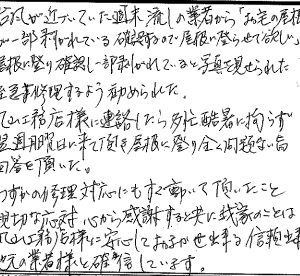 台風が近づいていた週末、流しの業者から「お宅の屋根
が一部剥がれている 確認するので屋根に登らせて欲しい」
屋根に登り確認し一部剥がれていると写真を見せられた
至急修理するよう勧められた。
工務店様に連絡したら多忙酷暑に拘らず
翌週月曜日に来て頂き屋根に登り全く問題ない旨
回答を頂いた。
わずかの修理対応にもすぐ動いて頂いたこと
親切な応対 心から感謝すると共に我家のことは
工務店様に安心しておまかせ出来る信頼出来る
地元の業者様と確信しています。